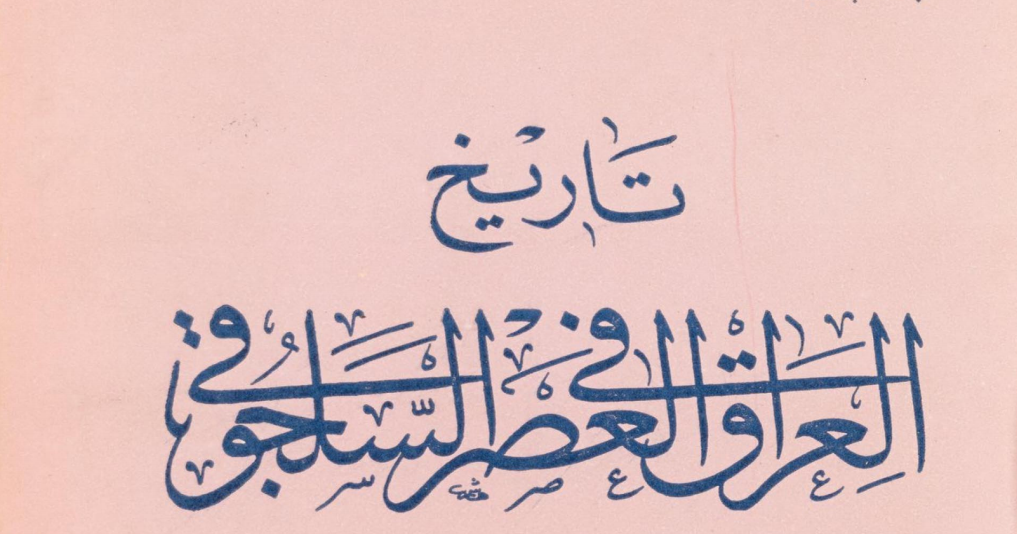 تاريخ
العراق في العصر السلجوقي